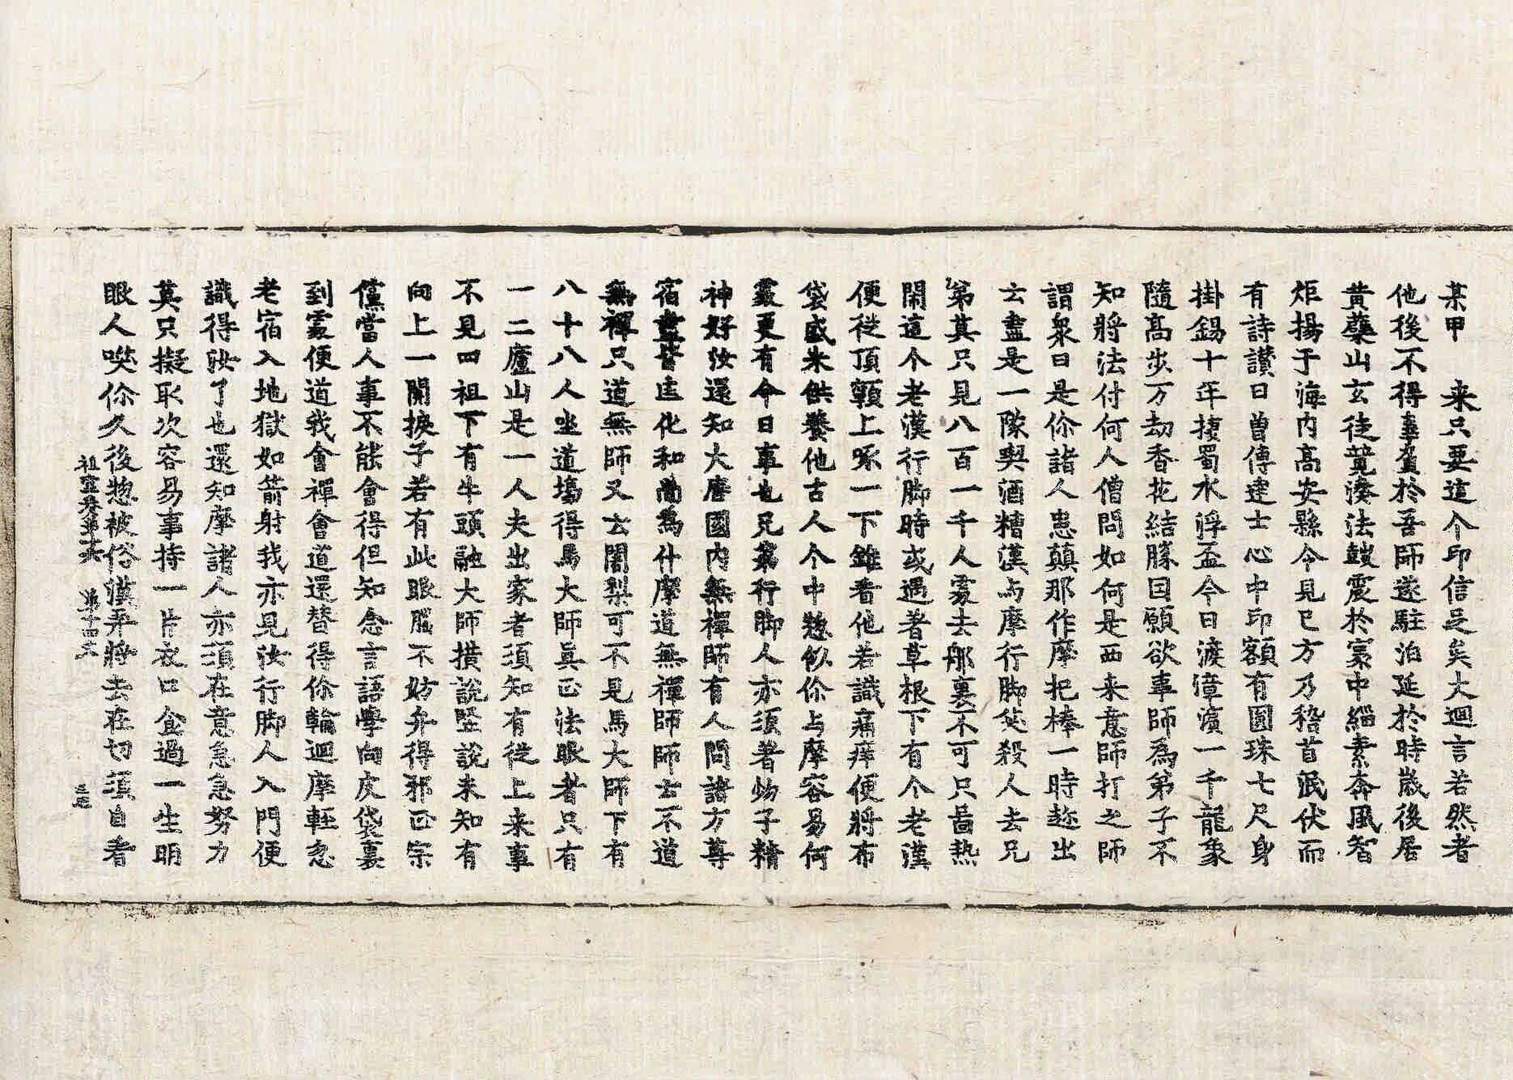 某甲　来只要這个印信足矣大迴言若然者
他後不得辜負於吾師遂駐泊延於時歲後居
黄蘗山玄徒竟湊法皷震於寰中緇素奔風智
炬揚于海内高安縣令見已方乃稽首虔伏而
有詩讃曰曽傳達士心中印額有圓珠七尺身
掛錫十年捿蜀水浮盃今日渡漳濵一千龍象
隨高步万劫香花結勝因願欲事師為弟子不
知將法付何人僧問如何是西来意師打之師
謂衆曰是你諸人患顛那作摩把棒一時趂出
云盡是一隊喫酒糟漢与摩行脚笑殺人去兄
弟莫只見八百一千人處去那裏不可只啚熱
閙這个老漢行脚時或遇著草根下有个老漢
便從頂顙上啄一下錐看他若識痛痒便將布
袋盛米供養他古人个中惣似你与摩容易何
處更有今日事也兄弟行脚人亦須著些子精
神好汝還知大唐國内無禪師有人問諸方尊
宿盡皆匡化和尚為什摩道無禪師師云不道
無禪只道無師又云闍梨可不見馬大師下有
八十八人坐道塲得馬大師真正法眼者只有
一二廬山是一人夫出家者須知有從上来事
不見四祖下有牛頭融大師横說竪說未知有
向上一關捩子若有此眼腦不妨弁得邪正宗
儻當人事不能會得但知念言語學向皮袋裏
到處便道我會禪會道還替得你輪迴摩輕忽
老宿入地獄如箭射我亦見汝行脚人入門便
識得汝了也還知摩諸人亦須在意急急努力
莫只擬取次容易事持一片衣口食過一生明
眼人唉你久後惣被俗漢弄將去在切須自看
祖堂巻第十六　第十四丈